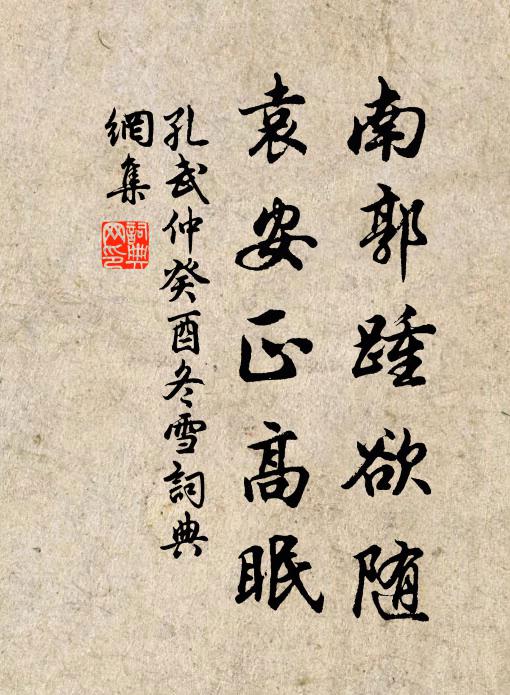 南郭踵欲随
袁安正高眠
孔武仲癸酉冬雪詞典
網集
詞典
网印